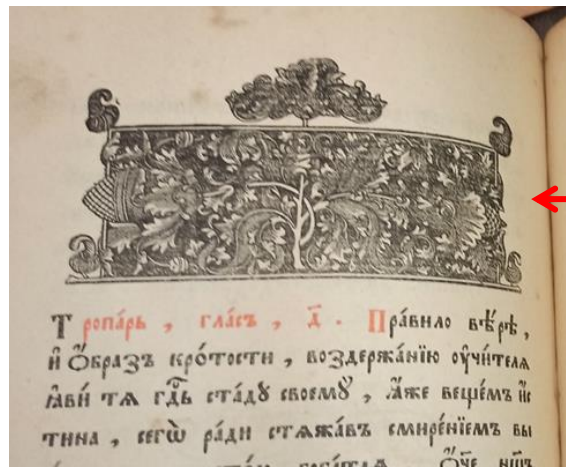 Тропа́рь , гла́съ , д҃ . Пра́вило вѣ́рѣ ,
и҆ Ѻ҆́бразъ кро́тости , воздержа́нїю ᲂу҆чи́телѧ
ꙗ҆ви́ тѧ гдⷭ҇ь ста́дꙋ своемꙋ̀ , ꙗ҆́же веще́мъ и҆́с
тина , сегѡ̀ ра́ди стѧжа́въ смире́нїемъ вы